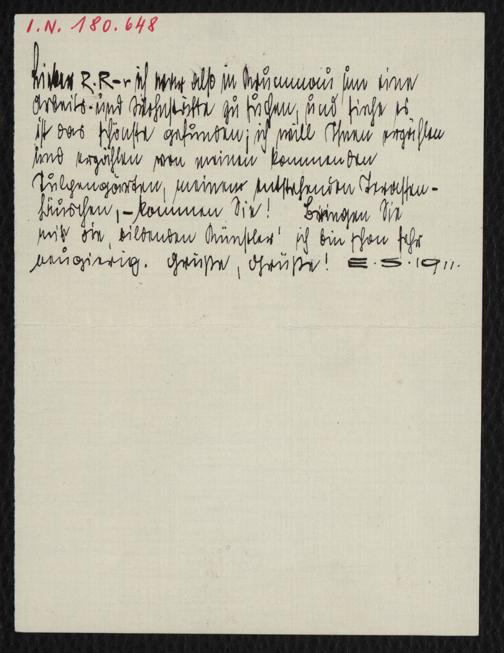 I.N. 180.648
Lieber R.R-r ich war also in Krummau um eine
Arbeits- und Wohnstätte zu suchen, und siehe es
ist das schönste gefunden; ich will Ihnen erzählen
und erzählen von meinen kommenden
Tulpengärten, meinem entstehenden Terassen-
häuschen, – kommen Sie! Bringen Sie
mit die, bildenden Künstler' ich bin schon sehr
neugierig. Grüße, Grüße! E.S.1911.